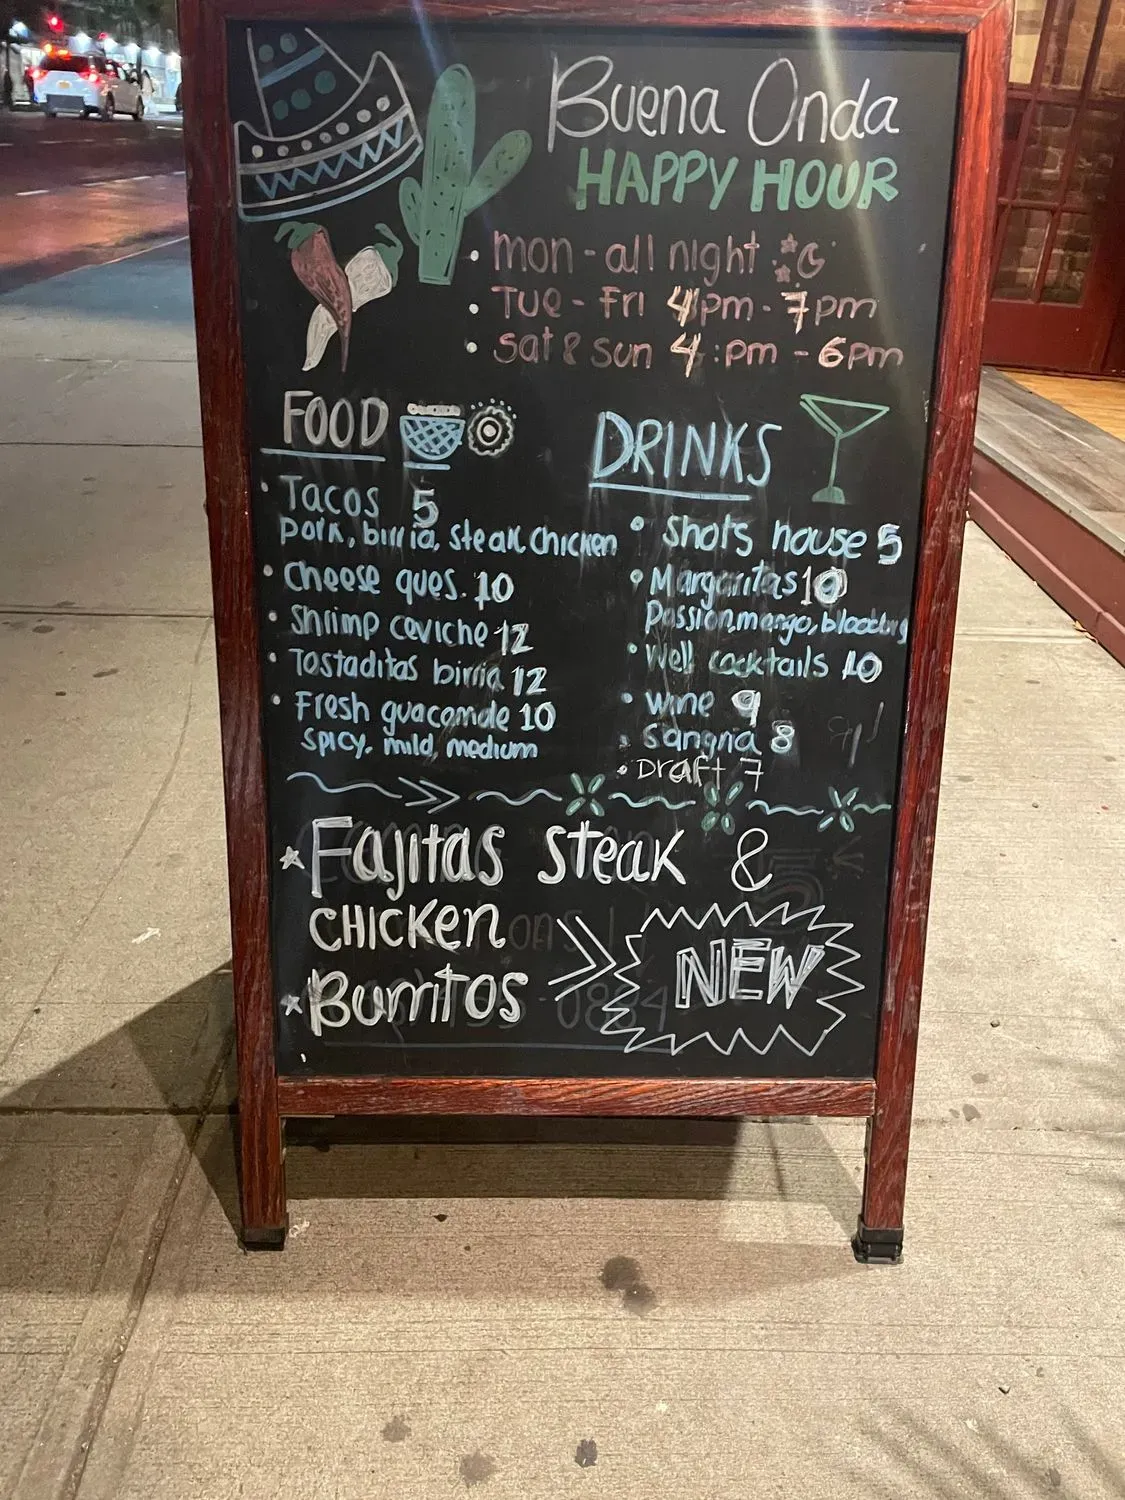 Buena Onda
HAPPY HOUR
• mon - all night
• TUE - Fri 4pm - 7pm
• Sat & Sun 4:pm - 6pm
FOOD
• Tacos 5
pork, birria, steak, chicken
• Cheese ques. 10
• Shrimp ceviche 12
• Tostaditas birria 12
• Fresh guacamole 10
spicy, mild, medium
DRINKS
• Shots house 5
• Margaritas 10
Passion, mango, blood
• Well cocktails 10
• wine 9
• Sangria 8
• Draft 7
Fajitas Steak &
CHICKEN
Burritos
NEW